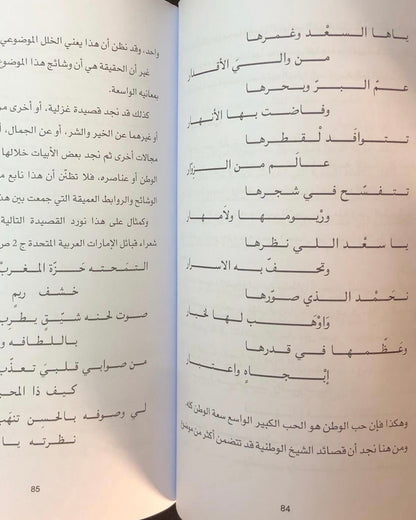 ياها السعد وغمرها
من والي الأقدار
عم البر وبحرها
وفاضت بها الأنهار
تتوافد لقطرها
عالم من الزوار
تتفسح في شجرها
وربومها ولامهار
يا سعد اللي نظرها
وتحف به الاسرار
نحمد الذي صورها
واوهب لها لخيار
وعظمها في قدرها
إبجاه واعتبار
وهكذا فإن حب الوطن هو الحب الكبير الواسع سعة الوطن كله.
ومن هنا نجد أن قصائد الشيخ الوطنية قد تتضمن أكثر من موضوع
84
واحد، وقد نظن أن هذا يعني الخلل الموضوعي
غير أن الحقيقة هي أن وشائج هذا الموضوع
بمعانيه الواسعة.
كذلك قد نجد قصيدة غزلية، أو أخرى
أو غيرهما عن الخير والشر، أو عن الجمال، أ
مجالات أخرى ثم نجد بعض الأبيات خلالها
الوطن أو عناصره، فلا تظنّن أن هذا نابع م
الوشائج والروابط العميقة التي جمعت بين هذ
وكمثال على هذا نورد القصيدة التالية
شعراء قبائل الإمارات العربية المتحدة ج 2 ص
التسحته حزة المغرب
خشف ريم
صوت لحنه شيّق يطرب
باللطافه و
من صوابي قلبي تعذّب
كيف ذا المحب
لي وصوفه بالحسن تنهب
نظرته يا
85